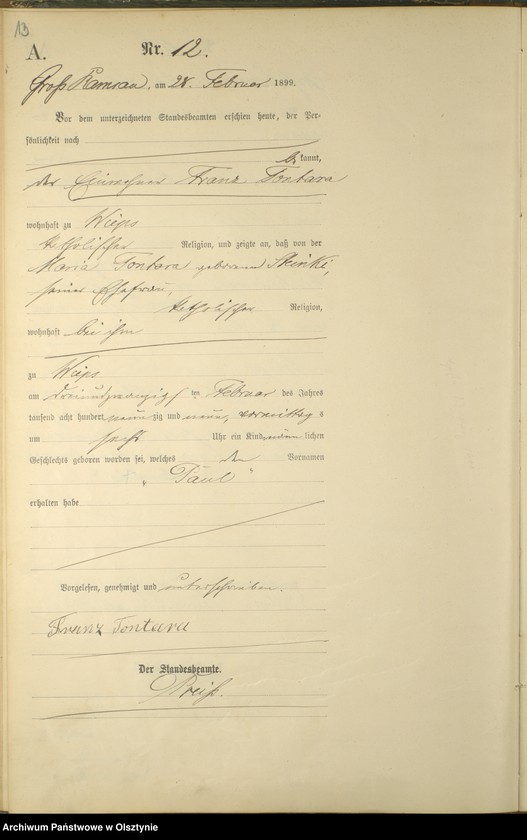 13
A.
Nr. 12.
Groß Ramsau, am 28. Februar 1899.
Vor dem unterzeichneten Standesbeamten erschien heute, der Per-
sönlichkeit nach
be kannt,
der Einwohner Franz Tontara
wohnhaft zu Wieps
katholischer Religion, und zeigte an, daß von der
Maria Tontara geborenen Skinki,
seiner Ehefrau,
katholischer Religion,
wohnhaft bei ihm
zu Wieps
am dreiundzwanzigsten Februar des Jahres
tausend acht hundert neun zig und neun, vormittags
um sechs Uhr ein Kind männ lichen
Geschlechts geboren worden sei, welches den Vornamen
„Paul"
erhalten habe
Vorgelesen, genehmigt und unterschrieben.
Franz Tontara
Der Standesbeamte.
Preiß.
Archiwum Państwowe w Olsztynie